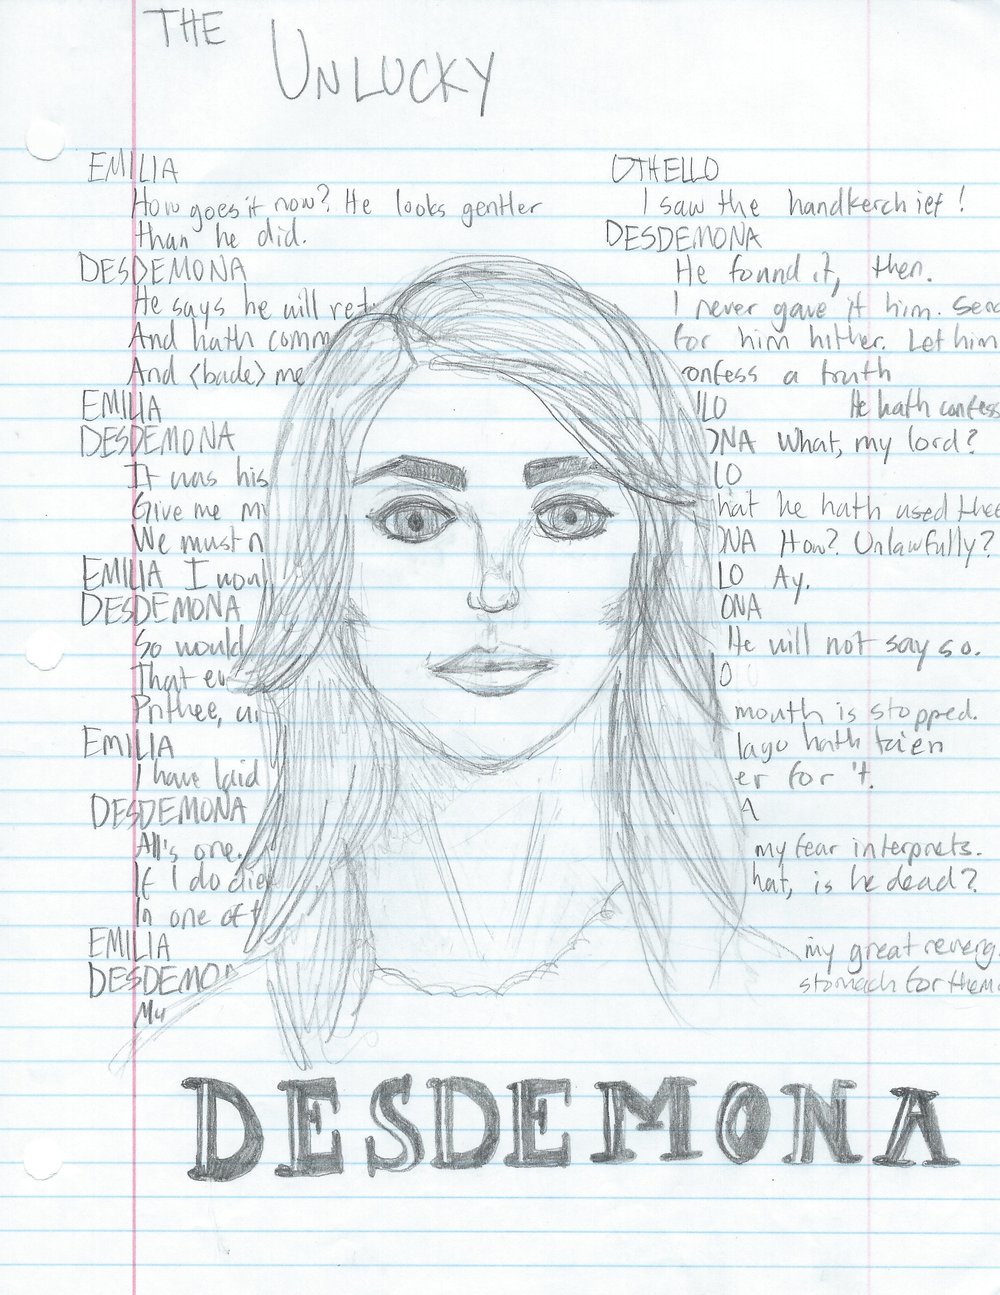 THE
UNLUCKY
EMILIA
How goes it now? He looks gentler
than he did.
DESDEMONA
He says he will ret
And hath comm
And <bade> me
EMILIA
DESDEMONA
It was his
Give me m
We must n
EMILIA I woul
DESDEMONA
So would
That ev
Prithee, un
EMILIA
I have laid
DESDEMONA
All's one.
If I do die
In one of t
EMILIA
DESDEMON
My
OTHELLO
I saw the handkerchief!
DESDEMONA
He found it, then.
I never gave it him. Send
for him hither. Let him
onfess a truth
LLO He hath confess
ONA What, my lord?
LO
hat he hath used thee
ONA How? Unlawfully?
LO Ay.
ONA
He will not say so.
O
mouth is stopped.
Iago hath ta'en
er for 't.
A
my fear interprets.
hat, is he dead?
my great reveng
stomach for them a
DESDEMONA